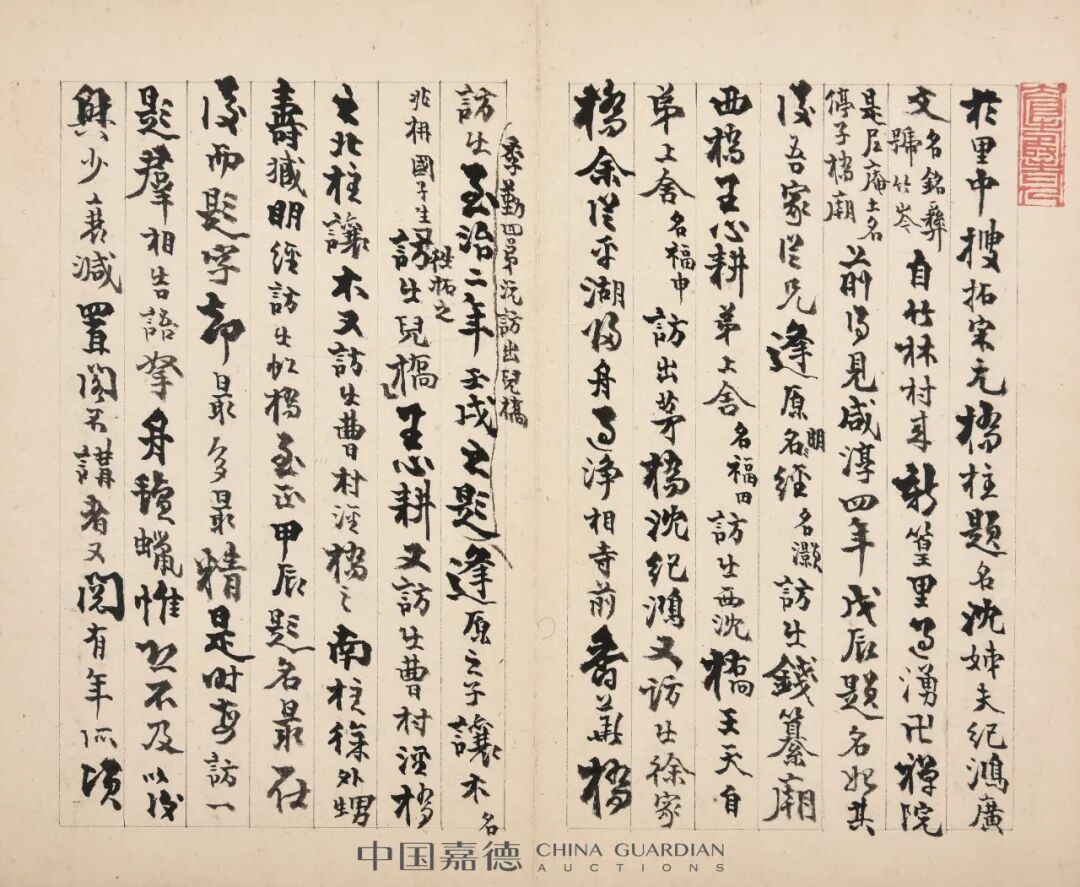 於里中搜拓宋元橋柱題名沈姊夫紀鴻廣
文名銘彝號竹岑自竹林村來新篁里過湧卍禪院
是尼庵土名停子橋廟前得見咸淳四年戊辰題名始其
後吾家從兄逢原明經名灝訪出錢纂廟
西橋王心耕弟上舍名福田訪出西沈橋王天自
弟上舍名福申訪出茅橋沈紀鴻又訪出徐家
橋余從平湖歸舟過淨相寺前香華橋
季勤四弟沅訪出兒橋
訪出至治二年壬戌之題逢原之子讓木名
兆枏國子生又訪出兒橋王心耕又訪出曹村涇橋
之北柱讓木又訪出曹村涇橋之南柱徐外甥
壽臧明經訪出虹橋至正甲辰題名最在
後而題字却最多最精是時每訪一
題羣相告語拏舟氈蠟惟恐不及以後
興少衰減置閣不講者又閱有年所頃
中国嘉德 CHINA GUARDIAN
AUCTIONS